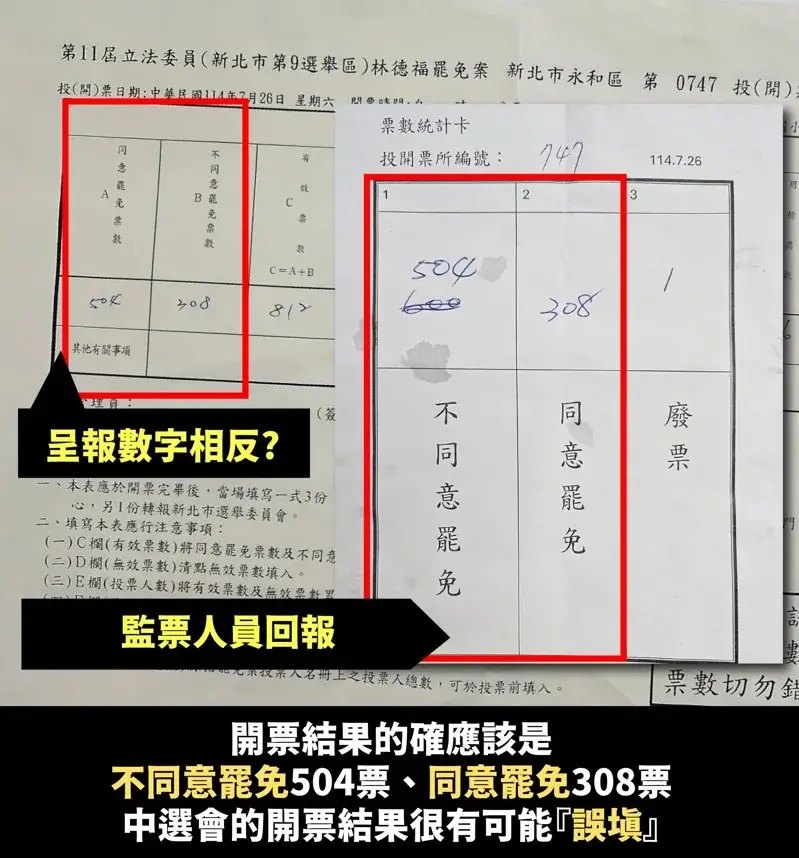 第11屆立法委員(新北市第9選舉區)林德福罷免案 新北市永和區 第 0747 投(開)
投(開)票日期:中華民國114年7月26日 星期六
同意罷免票數
A
不同意罷免票數
B
有效票數
C
C=A+B
504
308
812
其他有關事項
票數統計卡
投開票所編號：747
114.7.26
1
2
3
504
600
308
1
不同意罷免
同意罷免
廢票
呈報數字相反?
一、本表應於開票完畢後，當場填寫一式3份
心，另1份轉報新北市選舉委員會。
二、填寫本表應行注意事項：
(一)C欄(有效票數)將同意罷免票數及不同意
(二)D欄(無效票數)清點無效票數填入。
(三)E欄(投票人數)將有效票數及無效票數
監票人員回報
罷免票投票人名冊上之投票人總數，可於投票前填入。
票數切勿錯
開票結果的確應該是
不同意罷免504票、同意罷免308票
中選會的開票結果很有可能『誤填』